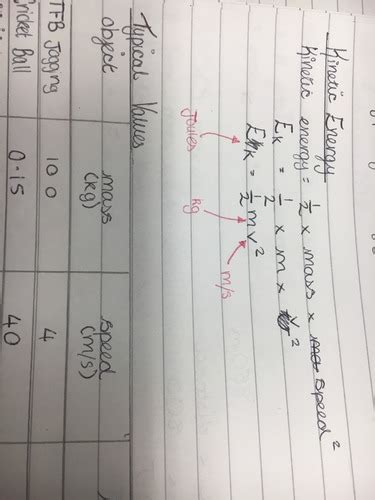 Kinetic Energy
Kinetic energy = 1/2 × mass × speed²
Ek = 1/2 × m × v²
Ek = 1/2 mv²
Joules
kg
m/s
Typical Values
object mass (kg) speed (m/s)
TFB Jogging 100 4
Cricket Ball 0.15 40